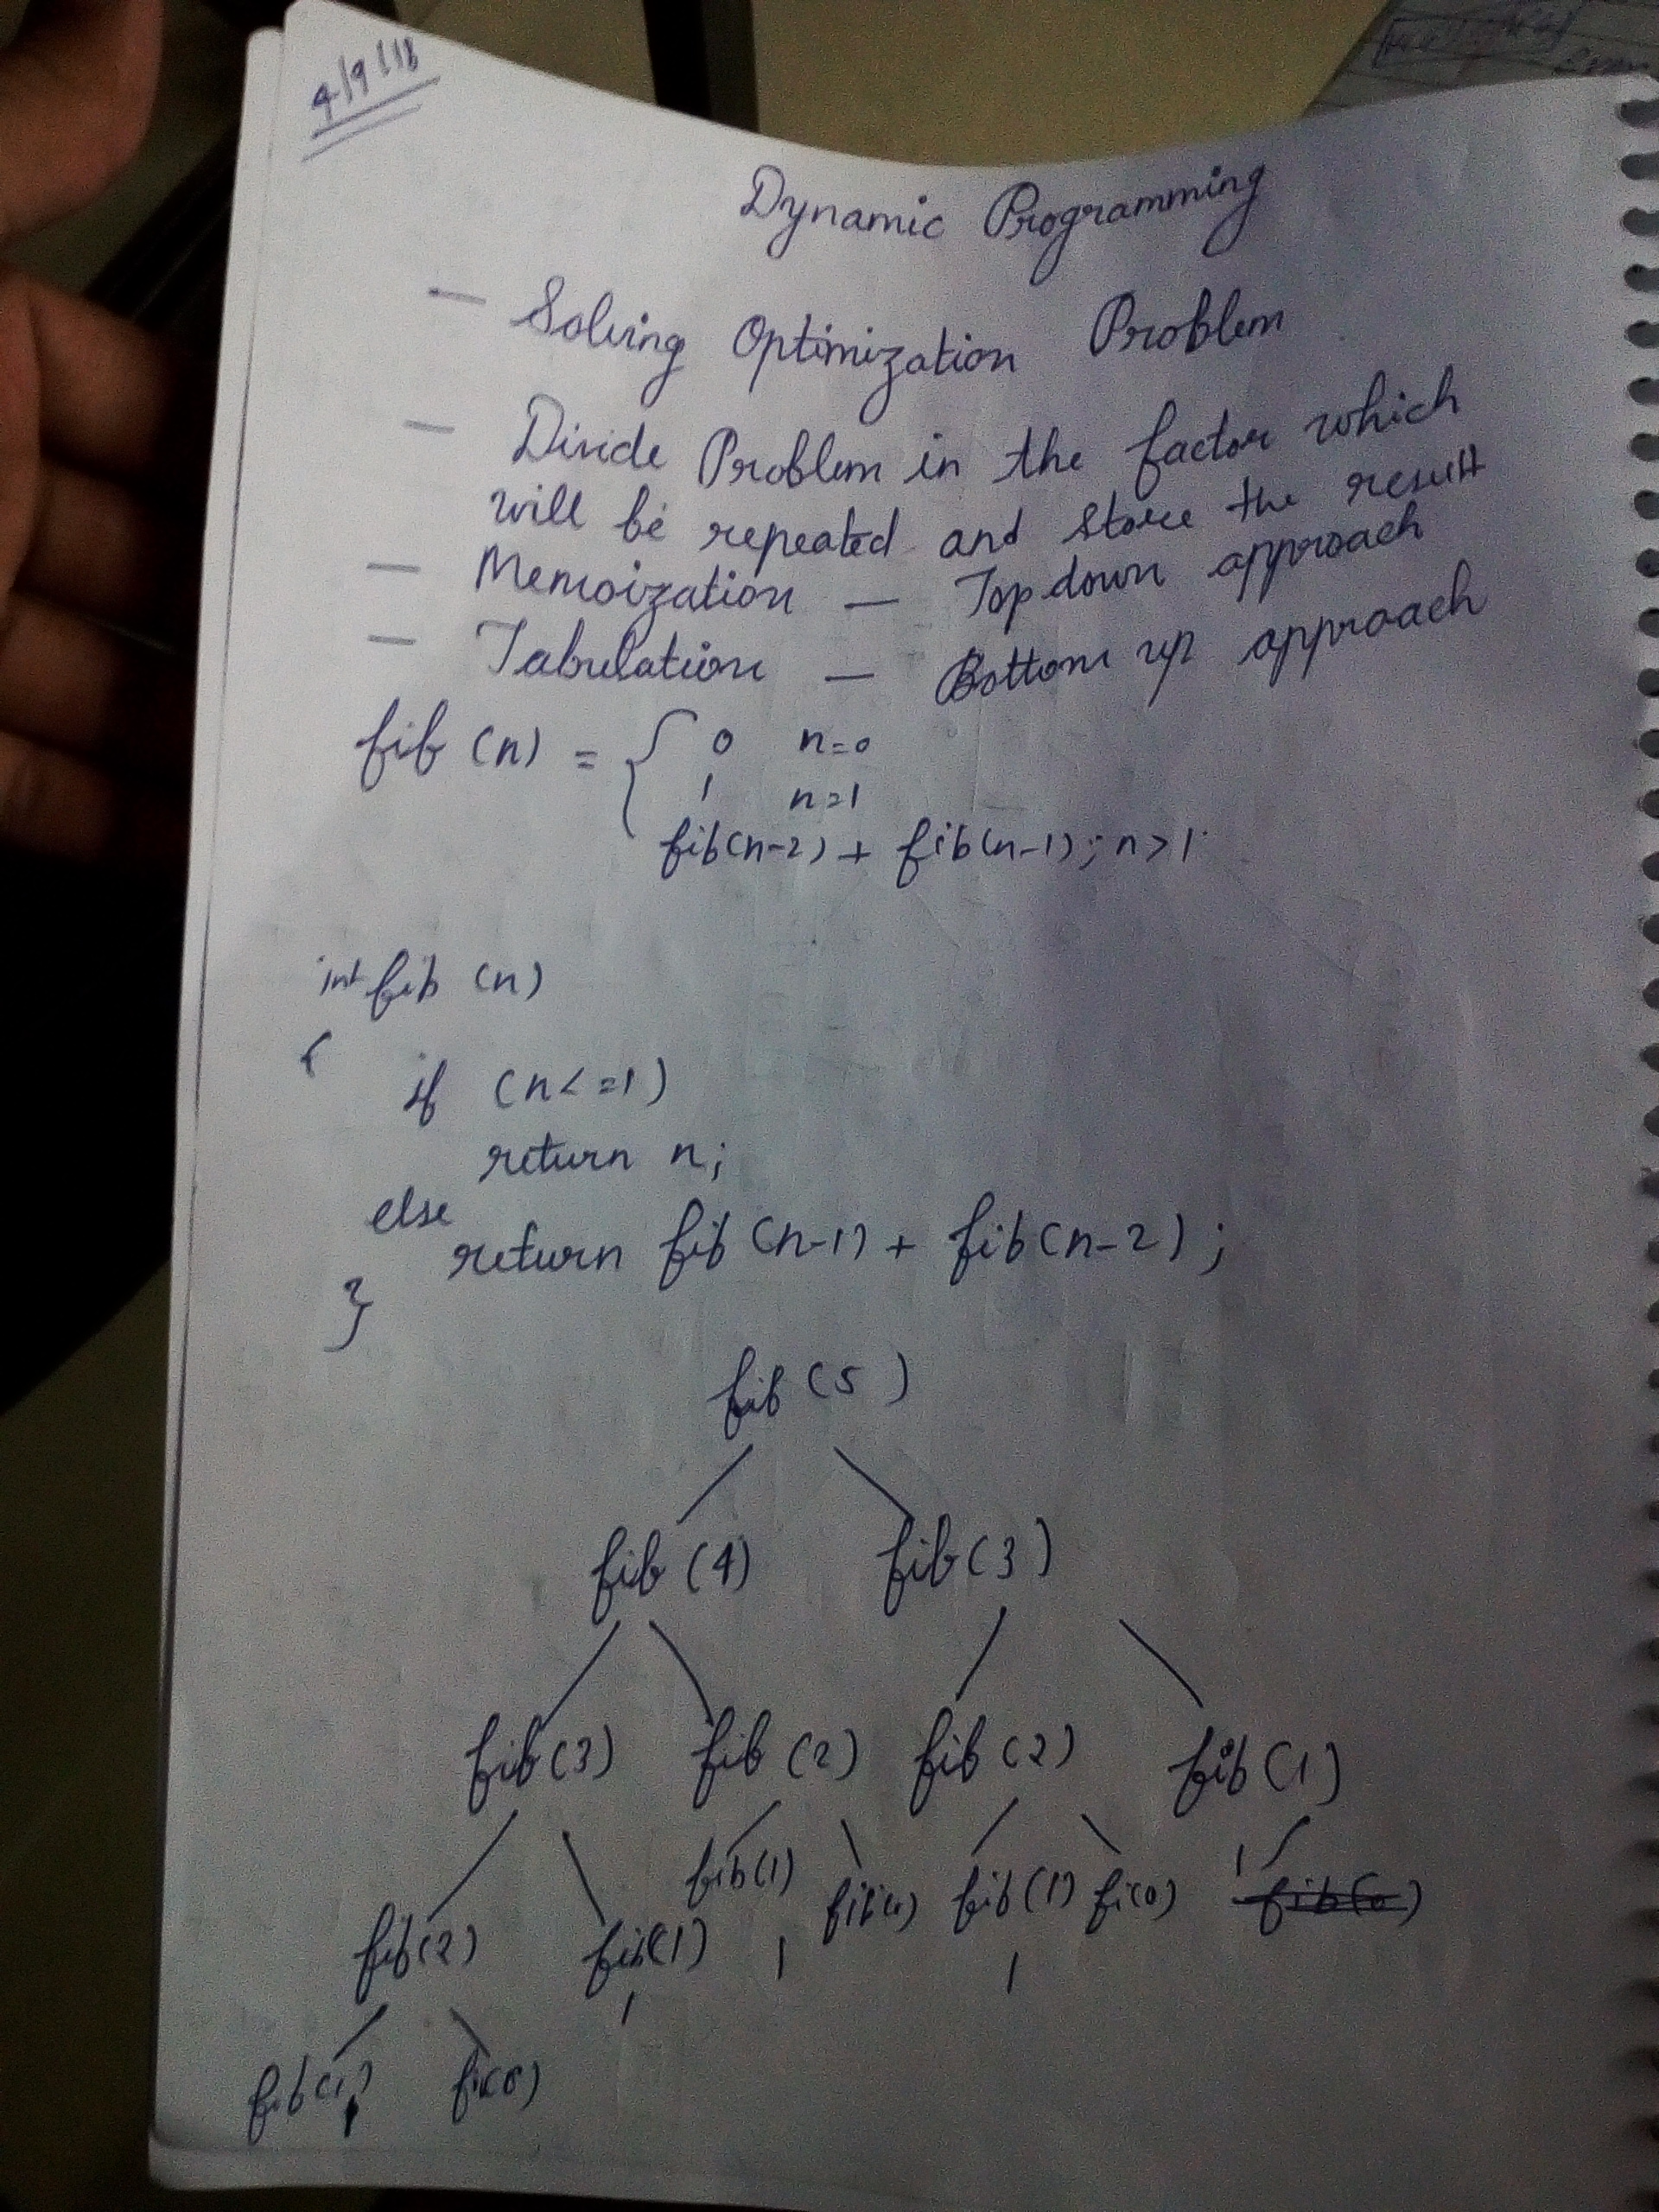 4/9/18
Dynamic Programming
— Solving Optimization Problem
— Divide Problem in the factor which
will be repeated and store the result
— Memoization — Top down approach
— Tabulation — Bottom up approach
fib (n) = { 0 n=0
1 n=1
fib(n-2) + fib(n-1); n>1
int fib (n)
{
if (n<=1)
return n;
else
return fib(n-1) + fib(n-2);
}
fib(5)
fib(4) fib(3)
fib(3) fib(2) fib(2) fib(1)
fib(1) fib(1) fi(0) 1 fib(0)
fib(2) fib(1) 1 1
1
fib(1) fi(0)